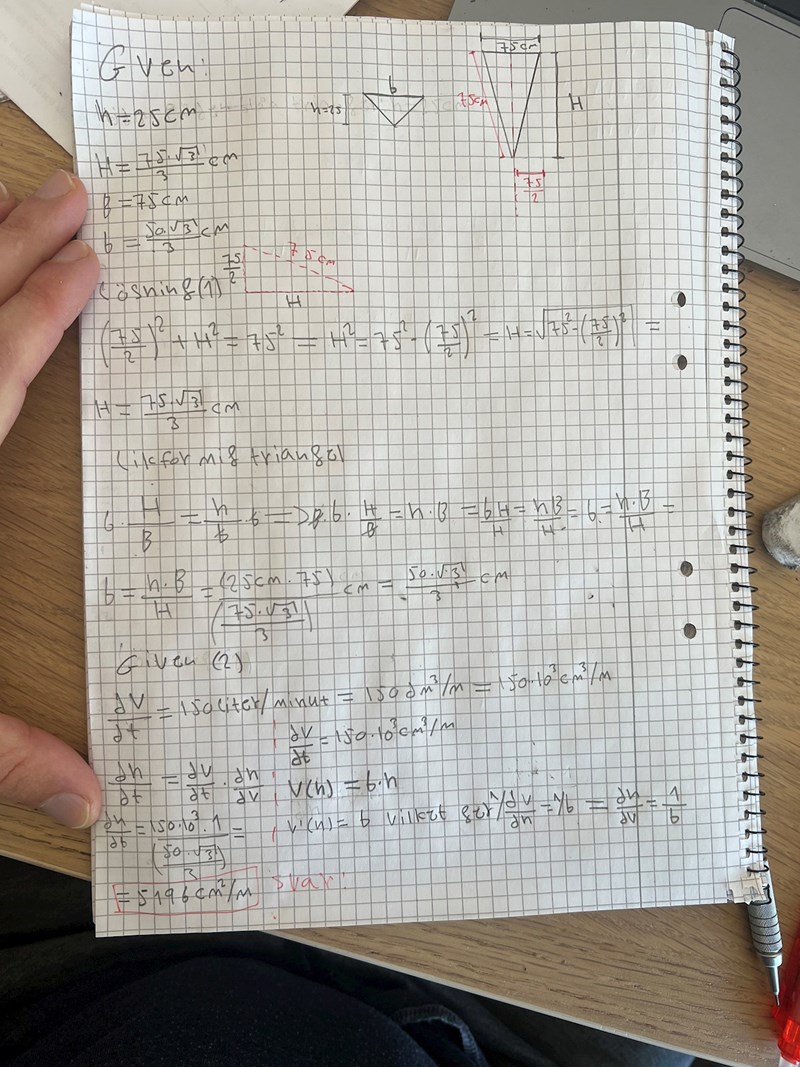 Given:
75cm
b
h=25
75cm
H
75/2
h=25cm
H = 75·√3/3 cm
B = 75cm
b = 50√3/3 cm
Lösning(1)
75/2
75cm
H
(75/2)² + H² = 75² = H² = 75² - (75/2)² = H = √(75² - (75/2)²) =
H = 75·√3/3 cm
Likformig triangel
b · H/B = h/b · b => B · b · H/B = h·B = bH/H = hB/H = b = h·B/H =
b = h·B/H = (25cm·75)/(75·√3/3) cm = 50·√3/3 cm
Given (2)
dV/dt = 150 liter/minut = 150 dm³/m = 150·10³ cm³/m
dV/dt = 150·10³ cm³/m
dh/dt = dV/dt · dh/dV
V(h) = b·h
dh/dt = 150·10³ · 1/(50·√3/3) =
V'(h) = b vilket ger 1/dV/dh = 1/b = dh/dV = 1/b
= 5196 cm²/m
svar: